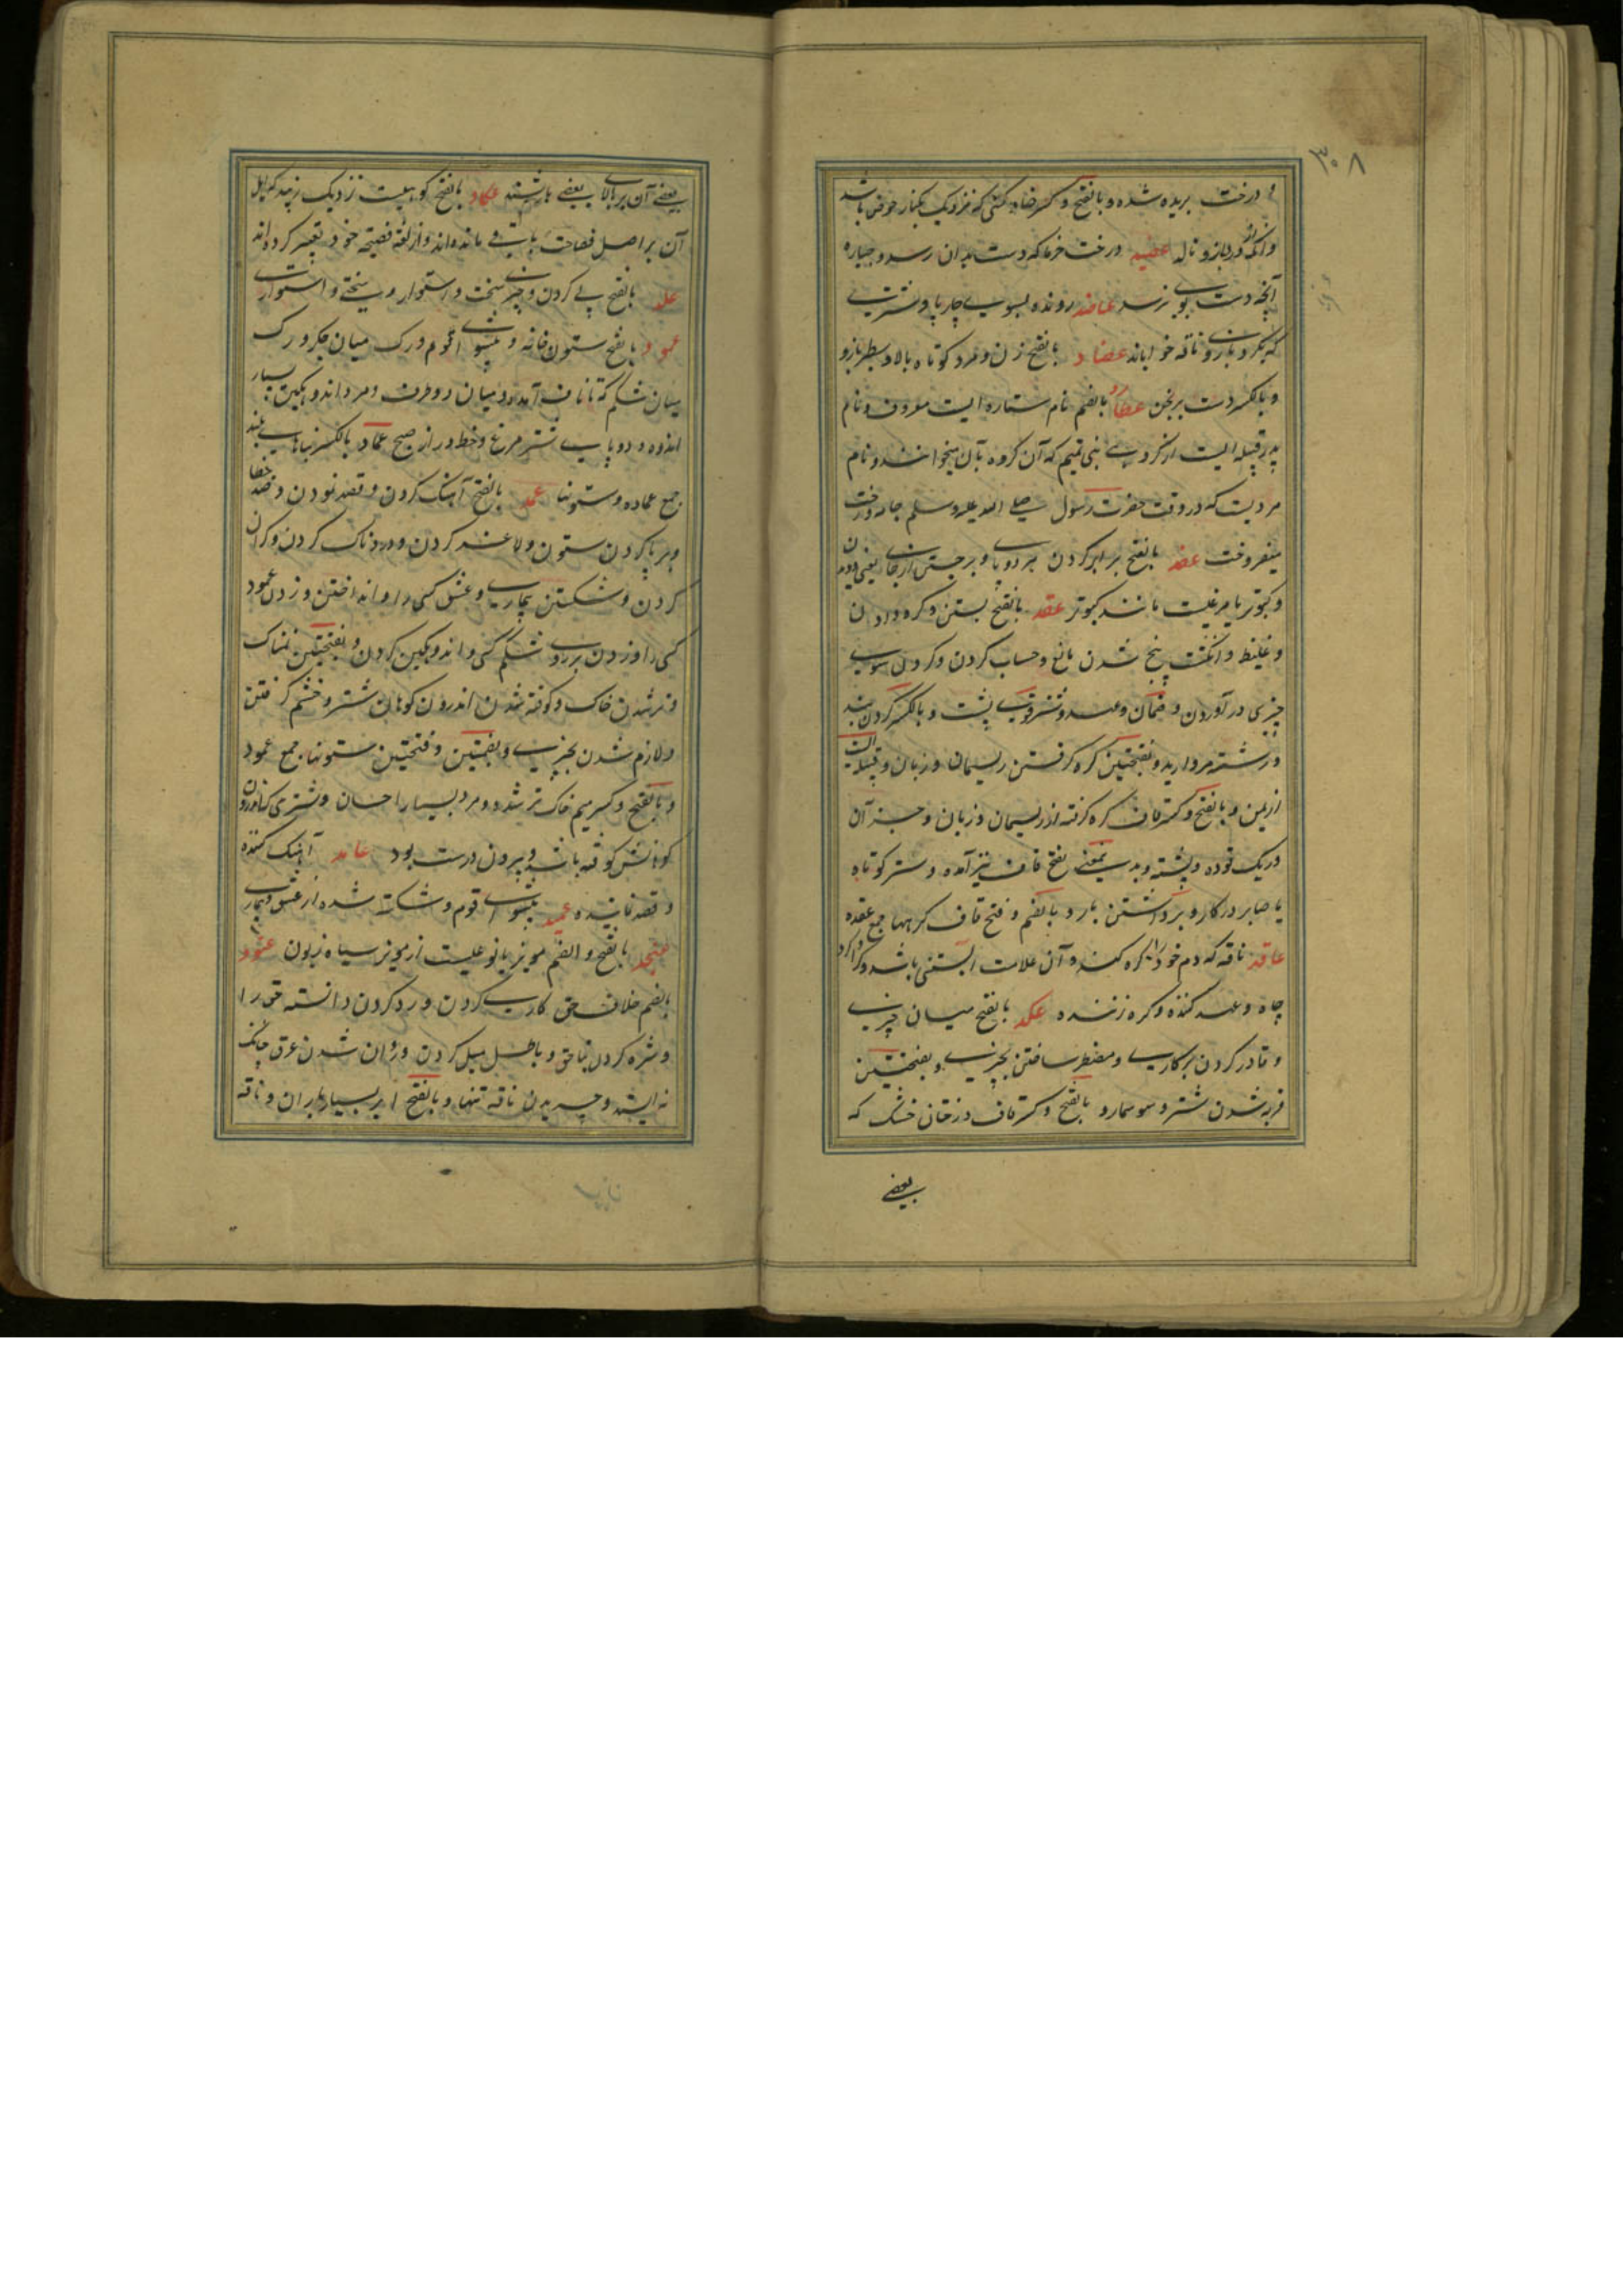 ۳۰۸
و درخت بریده شده و بالفتح و کسر ضاد کسی که نزدیک بکنار حوض باشد
و آنکه از درد بازو نالد عضید درخت خرما که دست بدان رسد و جباره
آنچه دست بوی نرسد عاضد رونده بسوی چارپا و شتری
که بگرد بازوی ناقه خواباند عضاد بالفتح زن و مرد کوتاه بالا و سطبر بازو
و بالکسر دست برنجن عطارد بالضم نام ستاره ایست معروف و نام
پدر قبیله ایست از گروهی بنی تمیم که آن گروه بآن میخوانند و نام
مردیست که در وقت حضرت رسول صلی الله علیه وسلم جامه و رخت
میفروخت عفد بالفتح برابر کردن هر دو پا و برجستن از جای یعنی دویدن
و کبوتر یا مرغیست مانند کبوتر عقد بالفتح بستن و گره دادن
و غلیظ و انگشت پنج شدن مایع و حساب کردن و گردن سوی
چیزی در آوردن و ضمان و عهد و شتر قوی پشت و بالکسر گردن بند
و رشته مروارید و بفتحتین گره گرفتن ریسمان و زبان و قبیله ایست
از یمن و بالفتح و کسر قاف گره گرفته از ریسمان و زبان و جز آن
و ریک توده و پشته و بدین معنی بفتح قاف نیز آمده و شتر کوتاه
یا صابر در کار و برداشتن بار و بالضم و فتح قاف گرهها جمع عقده
عاقد ناقه که دم خود را گره کند و آن علامت آبستنی باشد و گرداگرد
چاه و عهد کننده و گره زننده عکد بالفتح میان چیزی
و قادر کردن بر کاری و مضطر ساختن بچیزی و بفتحتین
فربه شدن شتر و سوسمار و بالفتح و کسر کاف درختان خشک که
بعضی
بعضی آن بر بالای بعضی باشند عکاد بالفتح کوهیست نزدیک زبید که اهل
آن بر اصل فصاحت باقی مانده اند و از لغت فصیحه خود تغییر کرده اند
علد بالفتح پی کردن و چیزی سخت و استوار و سختی و استواری
عمود بالفتح ستون خانه و پیشوای قوم و رگ میان جگر و رگ
میان شکم که تا ناف آمده و میان دو طرف و مرد اندوهگین بسیار
اندوه و دو پای شتر مرغ و خط دراز صبح عماد بالکسر بناهای بلند
جمع عماده و ستونها عمد بالفتح آهنگ کردن و قصد نمودن و ضد خطا
و برپا کردن ستون و لاغر کردن و دردناک کردن و گران
کردن و شکستن بیماری و عشق کسی را و انداختن و زدن عمود
کسی را و زدن بر روی شکم کسی و اندوهگین کردن و بفتحتین نمناک
و تر شدن خاک و کوفته شدن اندرون کوهان شتر و خشم گرفتن
و لازم شدن بچیزی و بضمتین و فتحتین ستونها جمع عمود
و بالفتح و کسر میم خاک تر شده و مرد بسیار احسان و شتری که اندرون
کوهانش کوفته باشد و بیرون درست بود عامد آهنگ کننده
و قصد نماینده عمید پیشوای قوم و شکسته شده از عشق و بیماری
عنجد بالفتح و الضم مویز یا نوعیست از مویز سیاه زبون عنود
بالضم خلاف حق کاری کردن و رد کردن دانسته حق را
و ستیزه کردن بناحق و بباطل میل کردن و روان شدن عرق چنانکه
نه ایستد و چریدن ناقه تنها و بالفتح ابر بسیار باران و ناقه